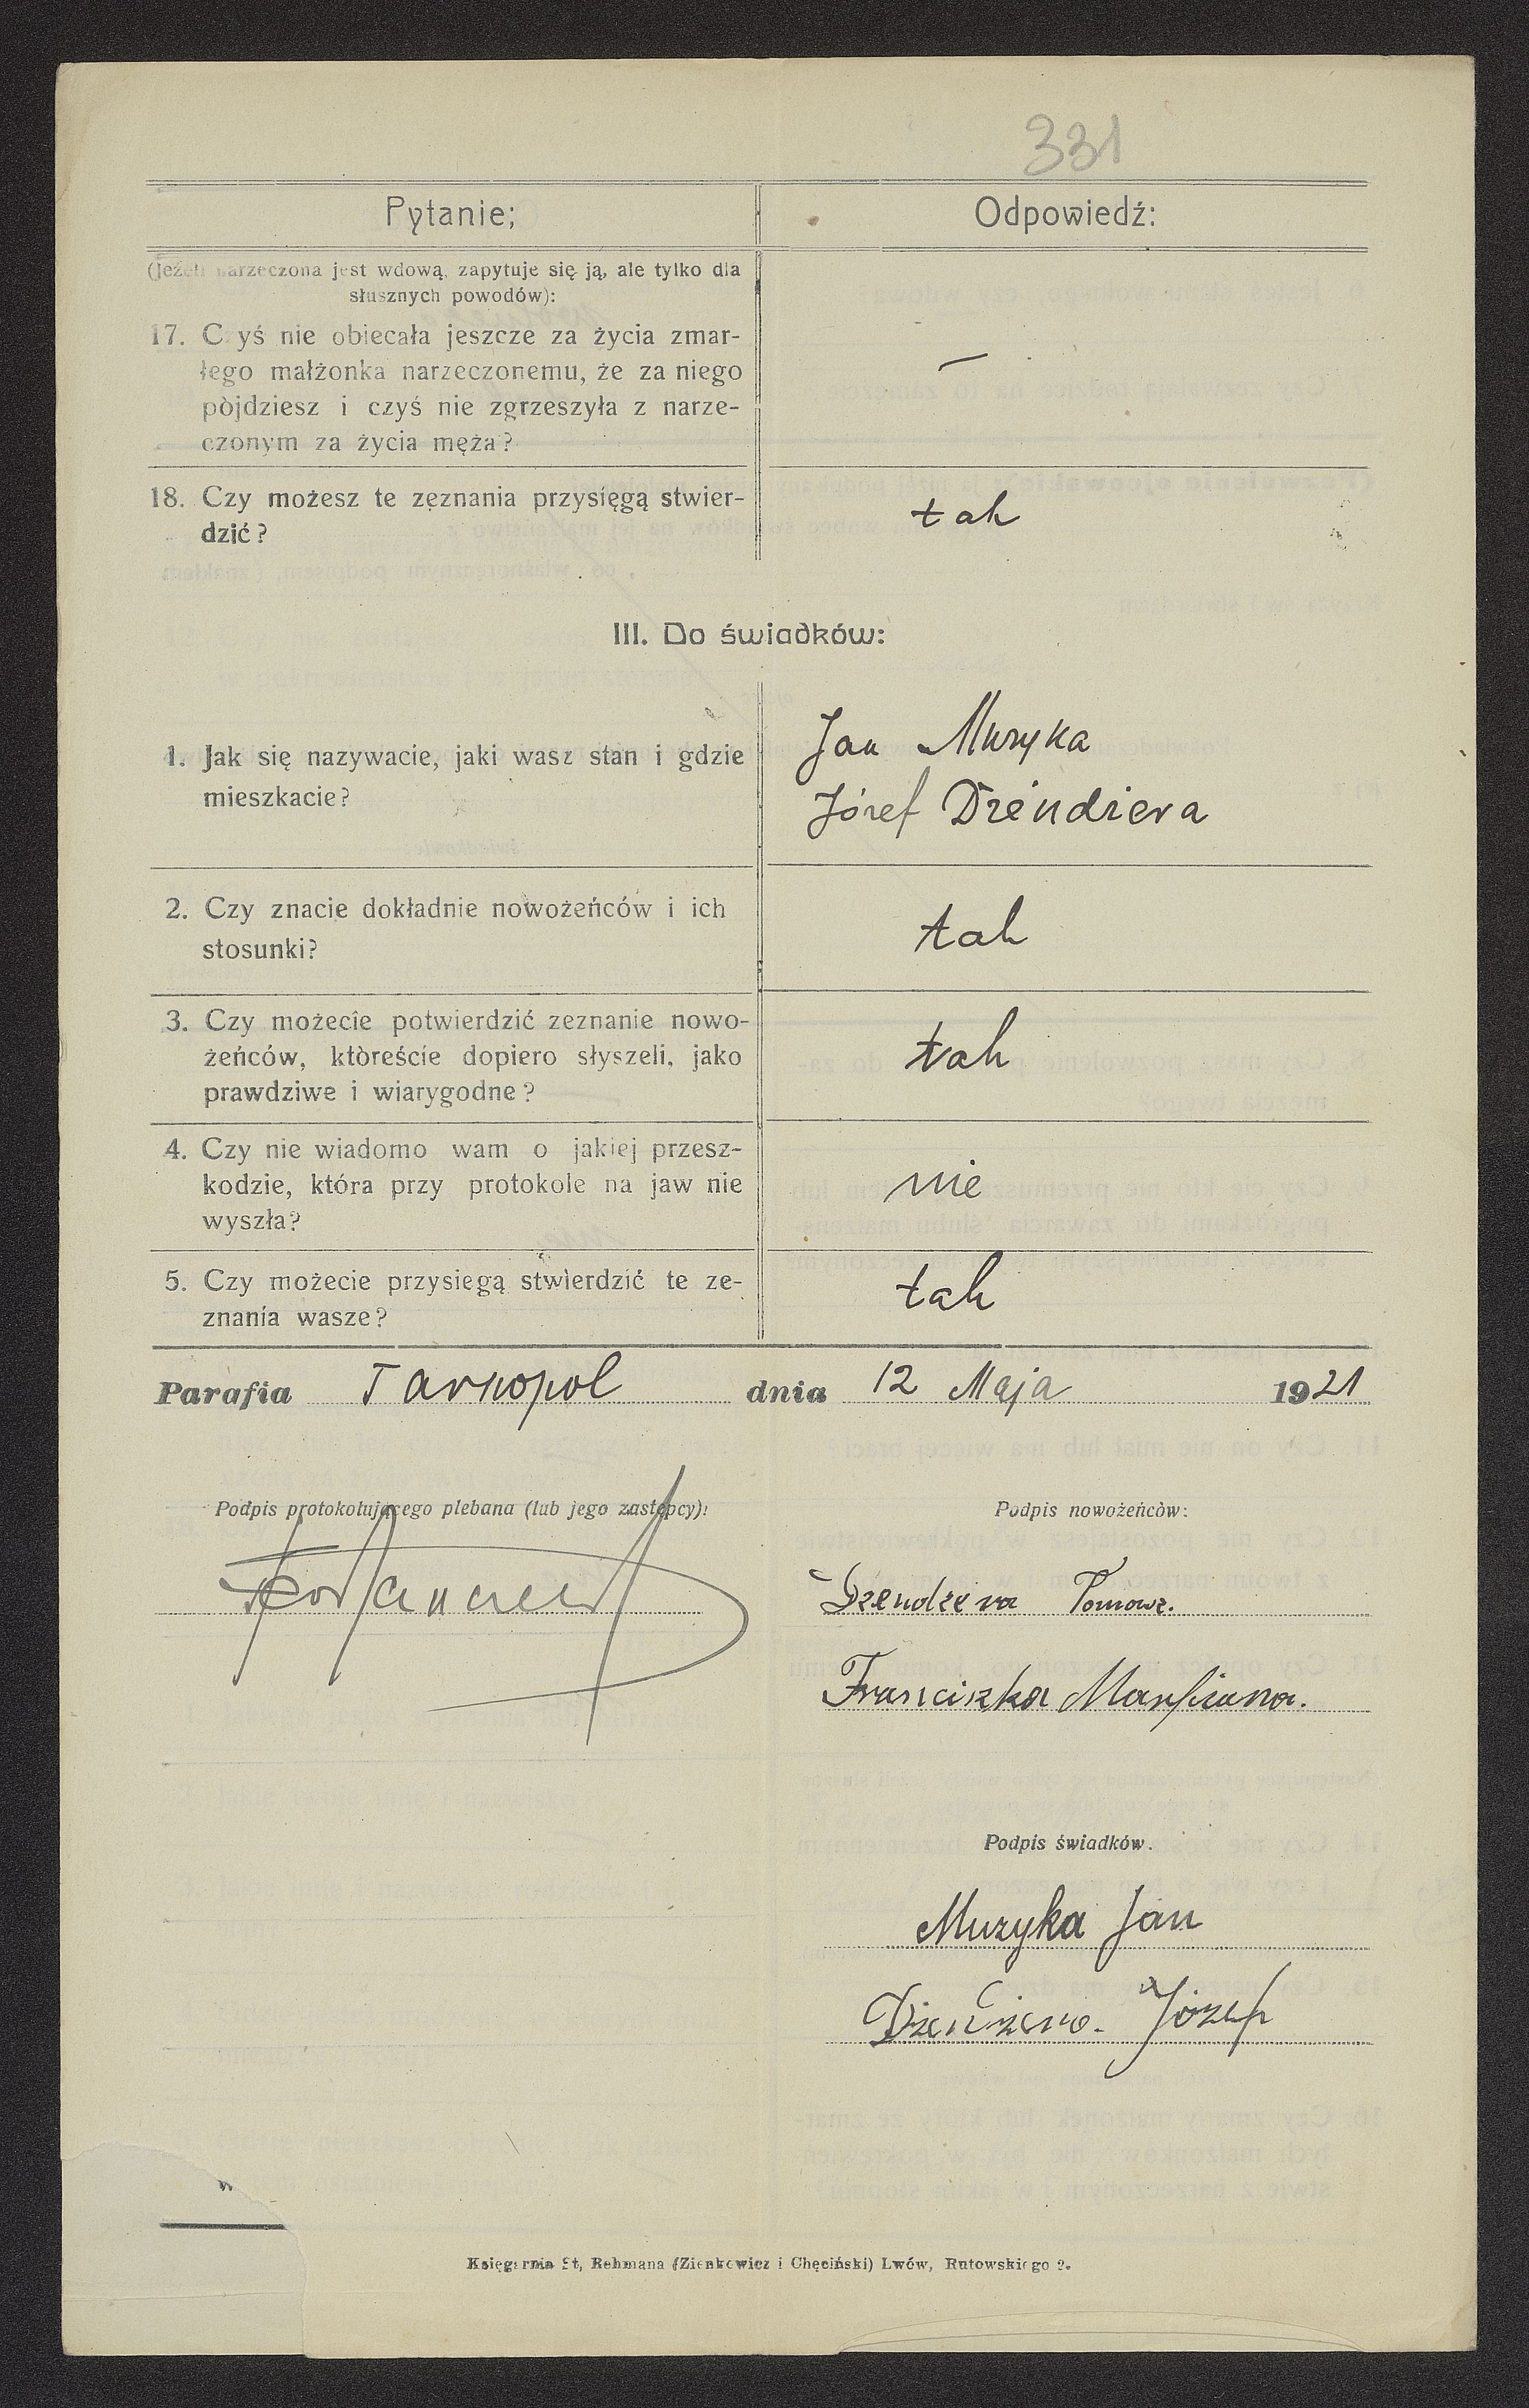 331
Pytanie; Odpowiedź:
(Jeżeli narzeczona jest wdową, zapytuje się ją, ale tylko dla
słusznych powodów):
17. Czyś nie obiecała jeszcze za życia zmar-
łego małżonka narzeczonemu, że za niego
pòjdziesz i czyś nie zgrzeszyła z narze-
czonym za życia męża?
—
18. Czy możesz te zeznania przysięgą stwier-
dzić?
tak
III. Do świadków:
1. Jak się nazywacie, jaki wasz stan i gdzie
mieszkacie?
Jan Muzyka
Józef Dzendzera
2. Czy znacie dokładnie nowożeńców i ich
stosunki?
tak
3. Czy możecie potwierdzić zeznanie nowo-
żeńców, któreście dopiero słyszeli, jako
prawdziwe i wiarygodne?
tak
4. Czy nie wiadomo wam o jakiej przesz-
kodzie, która przy protokole na jaw nie
wyszła?
nie
5. Czy możecie przysiegą stwierdzić te ze-
znania wasze?
tak
Parafia Tarnopol dnia 12 Maja 1921
Podpis protokołującego plebana (lub jego zastępcy): Podpis nowożeńców:
Dzendzera
Franciszka
Podpis świadków.
Muzyka Jan
Józef
Księgarnia St, Rehmana (Zienkowicz i Chęciński) Lwów, Rutowskiego 9.